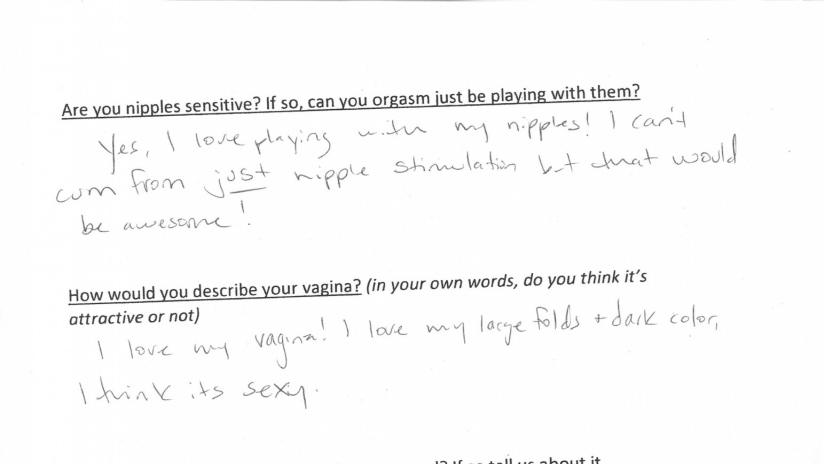 Are you nipples sensitive? If so, can you orgasm just be playing with them?
Yes, I love playing with my nipples! I can't
cum from just nipple stimulation but that would
be awesome!
How would you describe your vagina? (in your own words, do you think it's
attractive or not)
I love my vagina! I love my large folds + dark color,
I think its sexy.
If so tell us about it